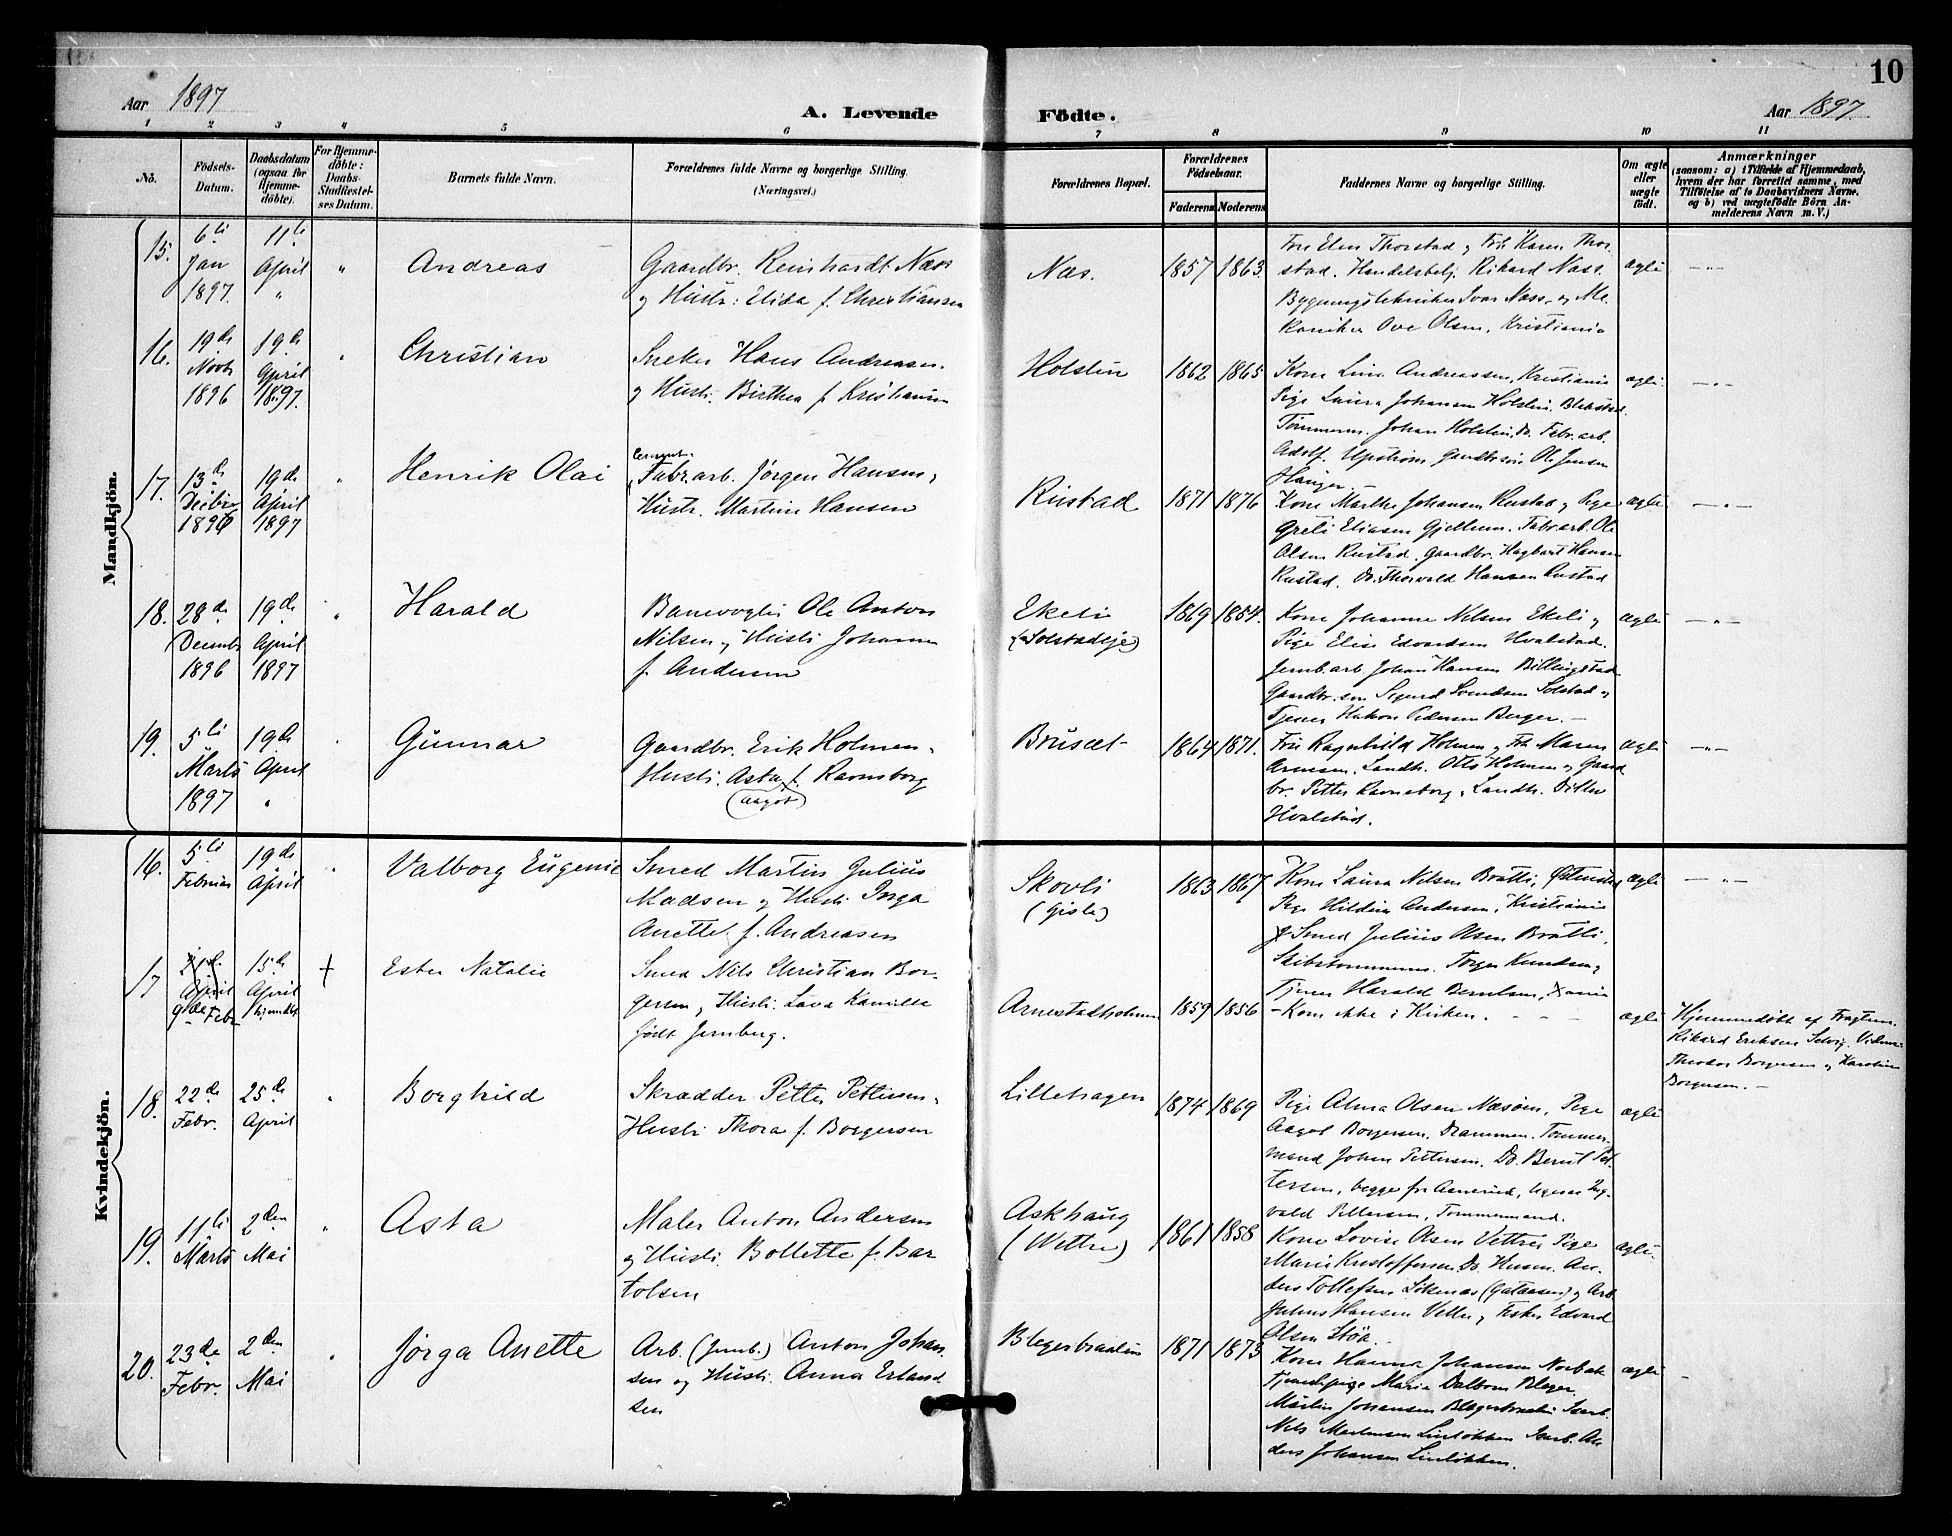 10
Aar 1897
A. Levende
Födte.
Aar 1897.
1 2 3 4 5 6 7 8 9 10 11
No.
Födsels-
Datum.
Daabsdatum
(ogsaa for
Hjemme-
döbte).
For Hjemme-
döbte:
Daabs-
Stadfæstel-
ses Datum.
Barnets fulde Navn.
Forældrenes fulde Navne og borgerlige Stilling.
(Næringsvei.)
Forældrenes Bopæl.
Forældrenes
Födselsaar.
Faderens
Moderens
Faddernes Navne og borgerlige Stilling.
Om ægte
eller
uægte
födt.
Anmærkninger
(saasom: a) i Tilfælde af Hjemmedaab,
hvem der har forrettet samme, med
Tilföielse af to Daabsvidners Navne,
og b) ved uægtefödte Börn An-
melderens Navn m. V.)
Mandkjön.
15.
6te
Jan
1897.
11te
April
"
"
Andreas
Gaardbr. Reinhardt Næss
og Hustr: Elida f. Christiansen
Næs.
1857
1863.
Fru Elen Thorstad og Frk Karen Thor-
stad. Handelsbetj. Rikard Næss.
Bygningstekniker Ivar Næss, og Me-
kaniker Ove Olsen, Kristiania
ægte
— " —
16.
19de
Novb
1896
19de
April
1897.
"
Christian
Sneker Hans Andreasen
og Hustr. Birthea f. Kristiansen
Holstin
1862
1865
Kone Lina Andreassen, Kristiania
Pige Laura Johansen Holstin. Blakstad.
Tømmerm. Johan Holstin. Do. Fabr. arb.
Adolf Upström, Gaardbrsøn Ole Jensen
Hanger.
ægte
— " —
17.
13de
Decbr
1896
19de
April
1897
"
Henrik Olai
Cement.
Fabr. arb. Jörgen Hansen,
Hustr. Martine Hansen
Rustad
1871
1876
Kone Marthe Johansen Rustad og Pige
Grete Eliasen Gjellum. Fabr. arb. Ole
Olsen Rustad. Gaardbr. Hagbart Hansen
Rustad. Do. Thorvald Hansen Rustad
ægte
— " —
18.
28de
Decemb
1896
19de
April
1897
"
Harald
Banevogter Ole Anton
Nilsen og Hustr. Johanne
f. Andersen
Ekeli
(Solstadeje)
1869
1854.
Kone Johanne Nelsen Ekeli og
Pige Elise Edvardsen Hvalstad.
Jernb. arb. Johan Hansen Billingstad
Gaardbr. søn Sigurd Svendsen Solstad og
Tjener Hakon Pedersen Berger. —
ægte
— " —
19.
5te
Marts
1897
19de
April
"
Gunnar
Gaardbr. Erik Holmen,
Hustr. Asta f. Ravnsborg
(Aagot)
Brusæt
1864
1871.
Fru Ragnhild Holmen og Frk Maren
Arnesen. Landh. Otto Holmen og Gaard
br. Petter Ravnsborg, Landh. Ditlev
Hvalstad.
ægte
— " —
Kvindekjön.
16.
5te
Februar
19de
April
"
Valborg Eugenie
Smed Martin Julius
Madsen og Hustr. Inga
Anette f. Andreasen
Skovli
(Gisle)
1863
1867
Kone Laura Nilsen Bråtti, Østenstad
Pige Hildur Andersen, Kristiania
Smed Julius Olsen Bråtti,
Skibstømmerm. Torger Knudsen,
Tjener Harald Berntsen, Xania
ægte
— " —
17
April
9de Febr
15de
April
Hjemdøbt
+
Ester Natalie
Smed Nils Christian Bor-
gersen, Hustr. Lava Kamilla
født Jernberg.
Arnestadholmen
1859
1856
— Kom ikke i Kirken. - - -
ægte
Hjemmedøbt af Fragtm.
Rikard Eriksen Selvig. Vidner:
Theodor Borgersen og Karoline
Borgersen. —
18.
22de
Febr.
25de
April
"
Borghild
Skrædder Petter Pettersen,
Hustr. Thora f. Borgersen
Lillehagen
1874
1869
Pige Alma Olsen Næsøen, Pige
Aagot Borgersen, Drammen. Tømmer-
mand Johan Pettersen. Do. Bernt Pet-
tersen, begge fra Aamerud, Ing-
vald Pettersen, Tømmermand.
ægte
19.
11te
Marts
2den
Mai
"
Asta
Maler Anton Andersen
og Hustr. Bollette f. Bar
tolsen
Askhaug
(Wettre)
1861
1858
Kone Lovise Olsen Vettre, Pige
Marie Kristoffersen Do. Husm. An-
ders Tollefsen Løkenæs og Arb.
Julius Hansen Vettre, Fisker Edvard
Olsen Støa. —
ægte.
20.
23de
Febr.
2den
Mai
"
Jörga Anette
Arb. (Jernb.) Anton Johan
sen og Hustr. Anna Erland
sen
Blegerbraaten
1871
1873
Kone Hanna Johansen Norbak
Tjenestepige Maria Dalbom Bleger
Martin Johansen Blegerbraaten
Nils Martensen Linløkken An
ders Johansen Linløkken.
ægte